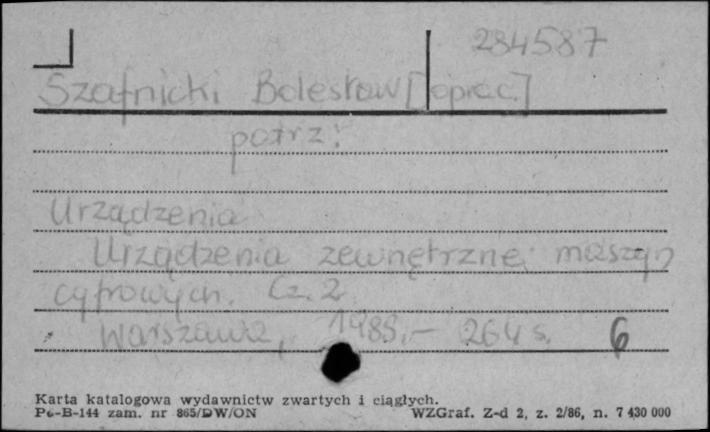 284587
Szafnicki Bolesław [oprac.]
patrz:
Urządzenia
Urządzenia zewnętrzne maszyn
cyfrowych. Cz. 2
Warszawa, 1985.- 264 s. 6
Karta katalogowa wydawnictw zwartych i ciągłych.
Pu-B-144 zam. nr 865/DW/ON WZGraf. Z-d 2, z. 2/86, n. 7 430 000